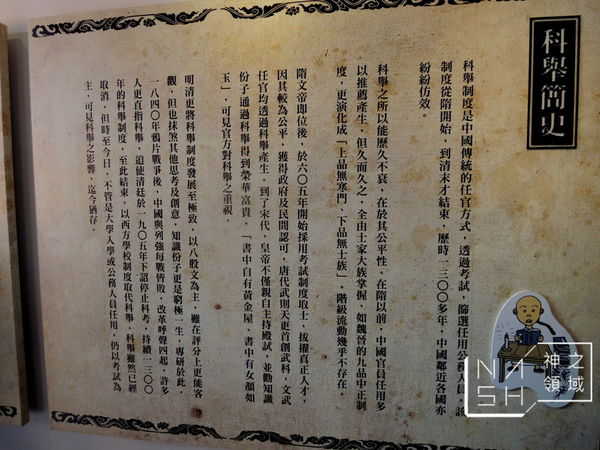 科舉簡史
科舉制度是中國傳統的任官方式，透過考試，篩選任用公務人員。該
制度從隋開始，到清末才結束，歷時一三〇〇多年，中國鄰近各國亦
紛紛仿效。
科舉之所以能歷久不衰，在於其公平性。在隋以前，中國官員任用多
以推薦產生，但久而久之，全由士家大族掌握，如魏晉的九品中正制
度，更演化成「上品無寒門、下品無士族」，階級流動幾乎不存在。
隋文帝即位後，於六〇五年開始採用考試制度取士，拔擢真正人才，
因其較為公平，獲得政府及民間認可，唐代武則天更首創武科，文武
任官均透過科舉產生。到了宋代，皇帝不僅親自主持殿試，並勸知識
份子通過科舉得到榮華富貴，「書中自有黃金屋，書中有女顏如
玉」，可見官方對科舉之重視。
明清更將科舉制度發展至極致，以八股文為主，雖在評分上更能客
觀，但也抹煞其他思考及創意，知識份子更是窮極一生，專研於此
一八四〇年鴉片戰爭後，中國與列強每戰皆敗，改革呼聲四起，許多
人更直指科舉，迫使清廷於一九〇五年下詔停止科考，持續一三〇〇
年的科舉制度，至此結束，以西方學校制度取代科舉。科舉雖然已經
取消，但時至今日，不管是大學入學或公務人員任用，仍以考試為
主，可見科舉之影響，迄今猶存。
NASH
神之
領域